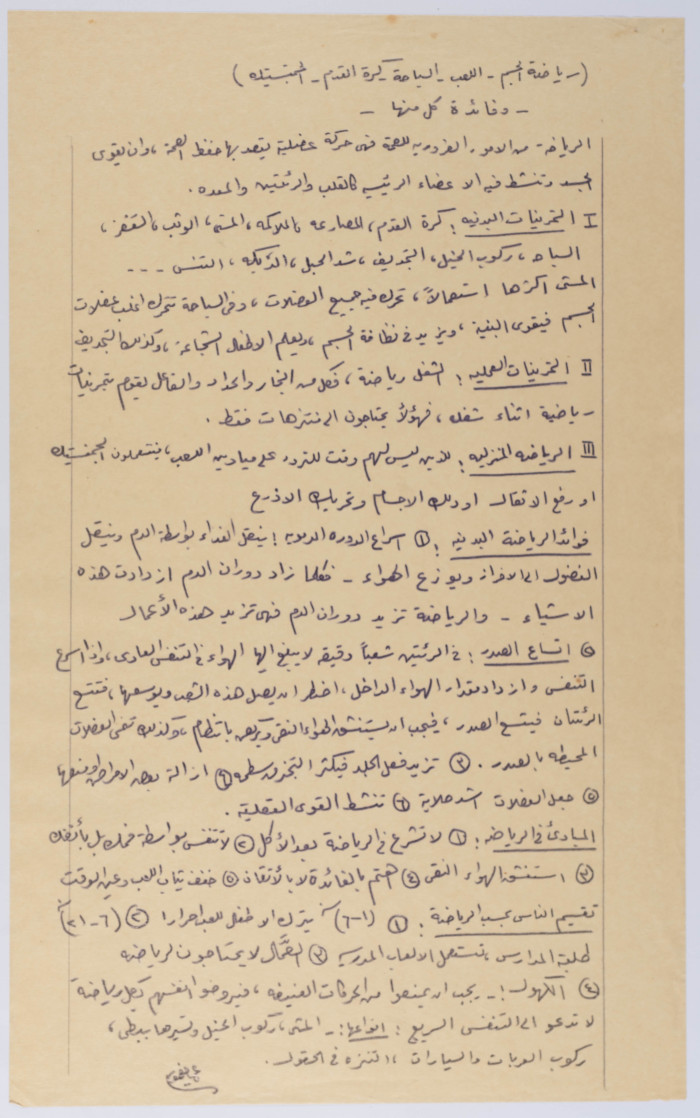 (رياضة الجسم - اللعب - السباحة - كرة القدم - الجمنستيك)
- وفائدة كل منها -
الرياضة من الامور الضرورية للصحة فهي حركة عضلية يقصد بها حفظ الصحة، وان يقوى
الجسد وتنشط فيه الاعضاء الرئيسيه كالقلب والرئتين والمعده.
I التمرينات البدنيه: كرة القدم، المصارعه، الملاكمه، المشي، الوثب، القفز،
السباحه، ركوب الخيل، التجديف، شد الحبل، التنس ---
المشي اكثرها استعمالاً، تحرك فيه جميع العضلات، وفي السباحة تتحرك اغلب عضلات
الجسم فيقوى البنية، ويزيد في نظافة الجسم، ويعلم الاطفال الشجاعة، وكذلك التجديف
II التمرينات العمليه: الشغل رياضة، فكل من النجار والحداد والفاعل يقوم بتمرينات
رياضية اثناء شغله، فهؤلاء يحتاجون الى منتزهات فقط.
III الرياضه المنزليه: للذين ليس لهم وقت للتردد على ميادين اللعب، فيستعملون الجمنستيك
او رفع الاثقال او دلك الاجسام وتحريك الاذرع
فوائد الرياضة البدنيه: ① اسراع الدوره الدمويه: ينقل الغذاء بواسطة الدم وينقل
الفضول الى الافراز ويوزع الهواء - فكلما زاد دوران الدم ازدادت هذه
الاشياء - والرياضة تزيد دوران الدم فهي تزيد هذه الأعمال
② اتساع الصدر: في الرئتين شعباً دقيقه لا يبلغ اليها الهواء في التنفس العادي، واذا اسرع
التنفس وازداد مقدار الهواء الداخل، اضطر ان يصل هذه الشعب ويوسعها، فتتسع
الرئتان فيتسع الصدر، فيجب ان يستنشق الهواء النقي بانتظام، وكذلك العضلات
المحيطه بالصدر. ③ تزيد فعل الجلد فيكثر التبخر من سطحه ④ ازالة بعض الامراض او منعها
⑤ جعل العضلات اشد صلابة ⑥ تنشط القوى العقلية.
المبادئ في الرياضه: ① لا تشرع في الرياضة بعد الأكل ② لا تتنفس بواسطة فمك بل بأنفك
③ استنشق الهواء النقي ④ اهتم بالفائدة لا بالاتقان ⑤ خفف ثياب اللعب وعين الوقت
تقسيم الناس بحسب الرياضة: ① (١-٦) يترك الاطفال للعب احرارا ② (٦-٢١)
طلبة المدارس، تستعمل الالعاب المدرسيه ③ العمّال لا يحتاجون لرياضه
④ الكهول: - يجب ان يمنعوا من الحركات العنيفه، فيروضوا انفسهم بكل رياضة
لا تدعو الى التنفس السريع: انواعها: - المشي، ركوب الخيل وتسيرها ببطئ،
ركوب العربات والسيارات، التنزه في الحقول.